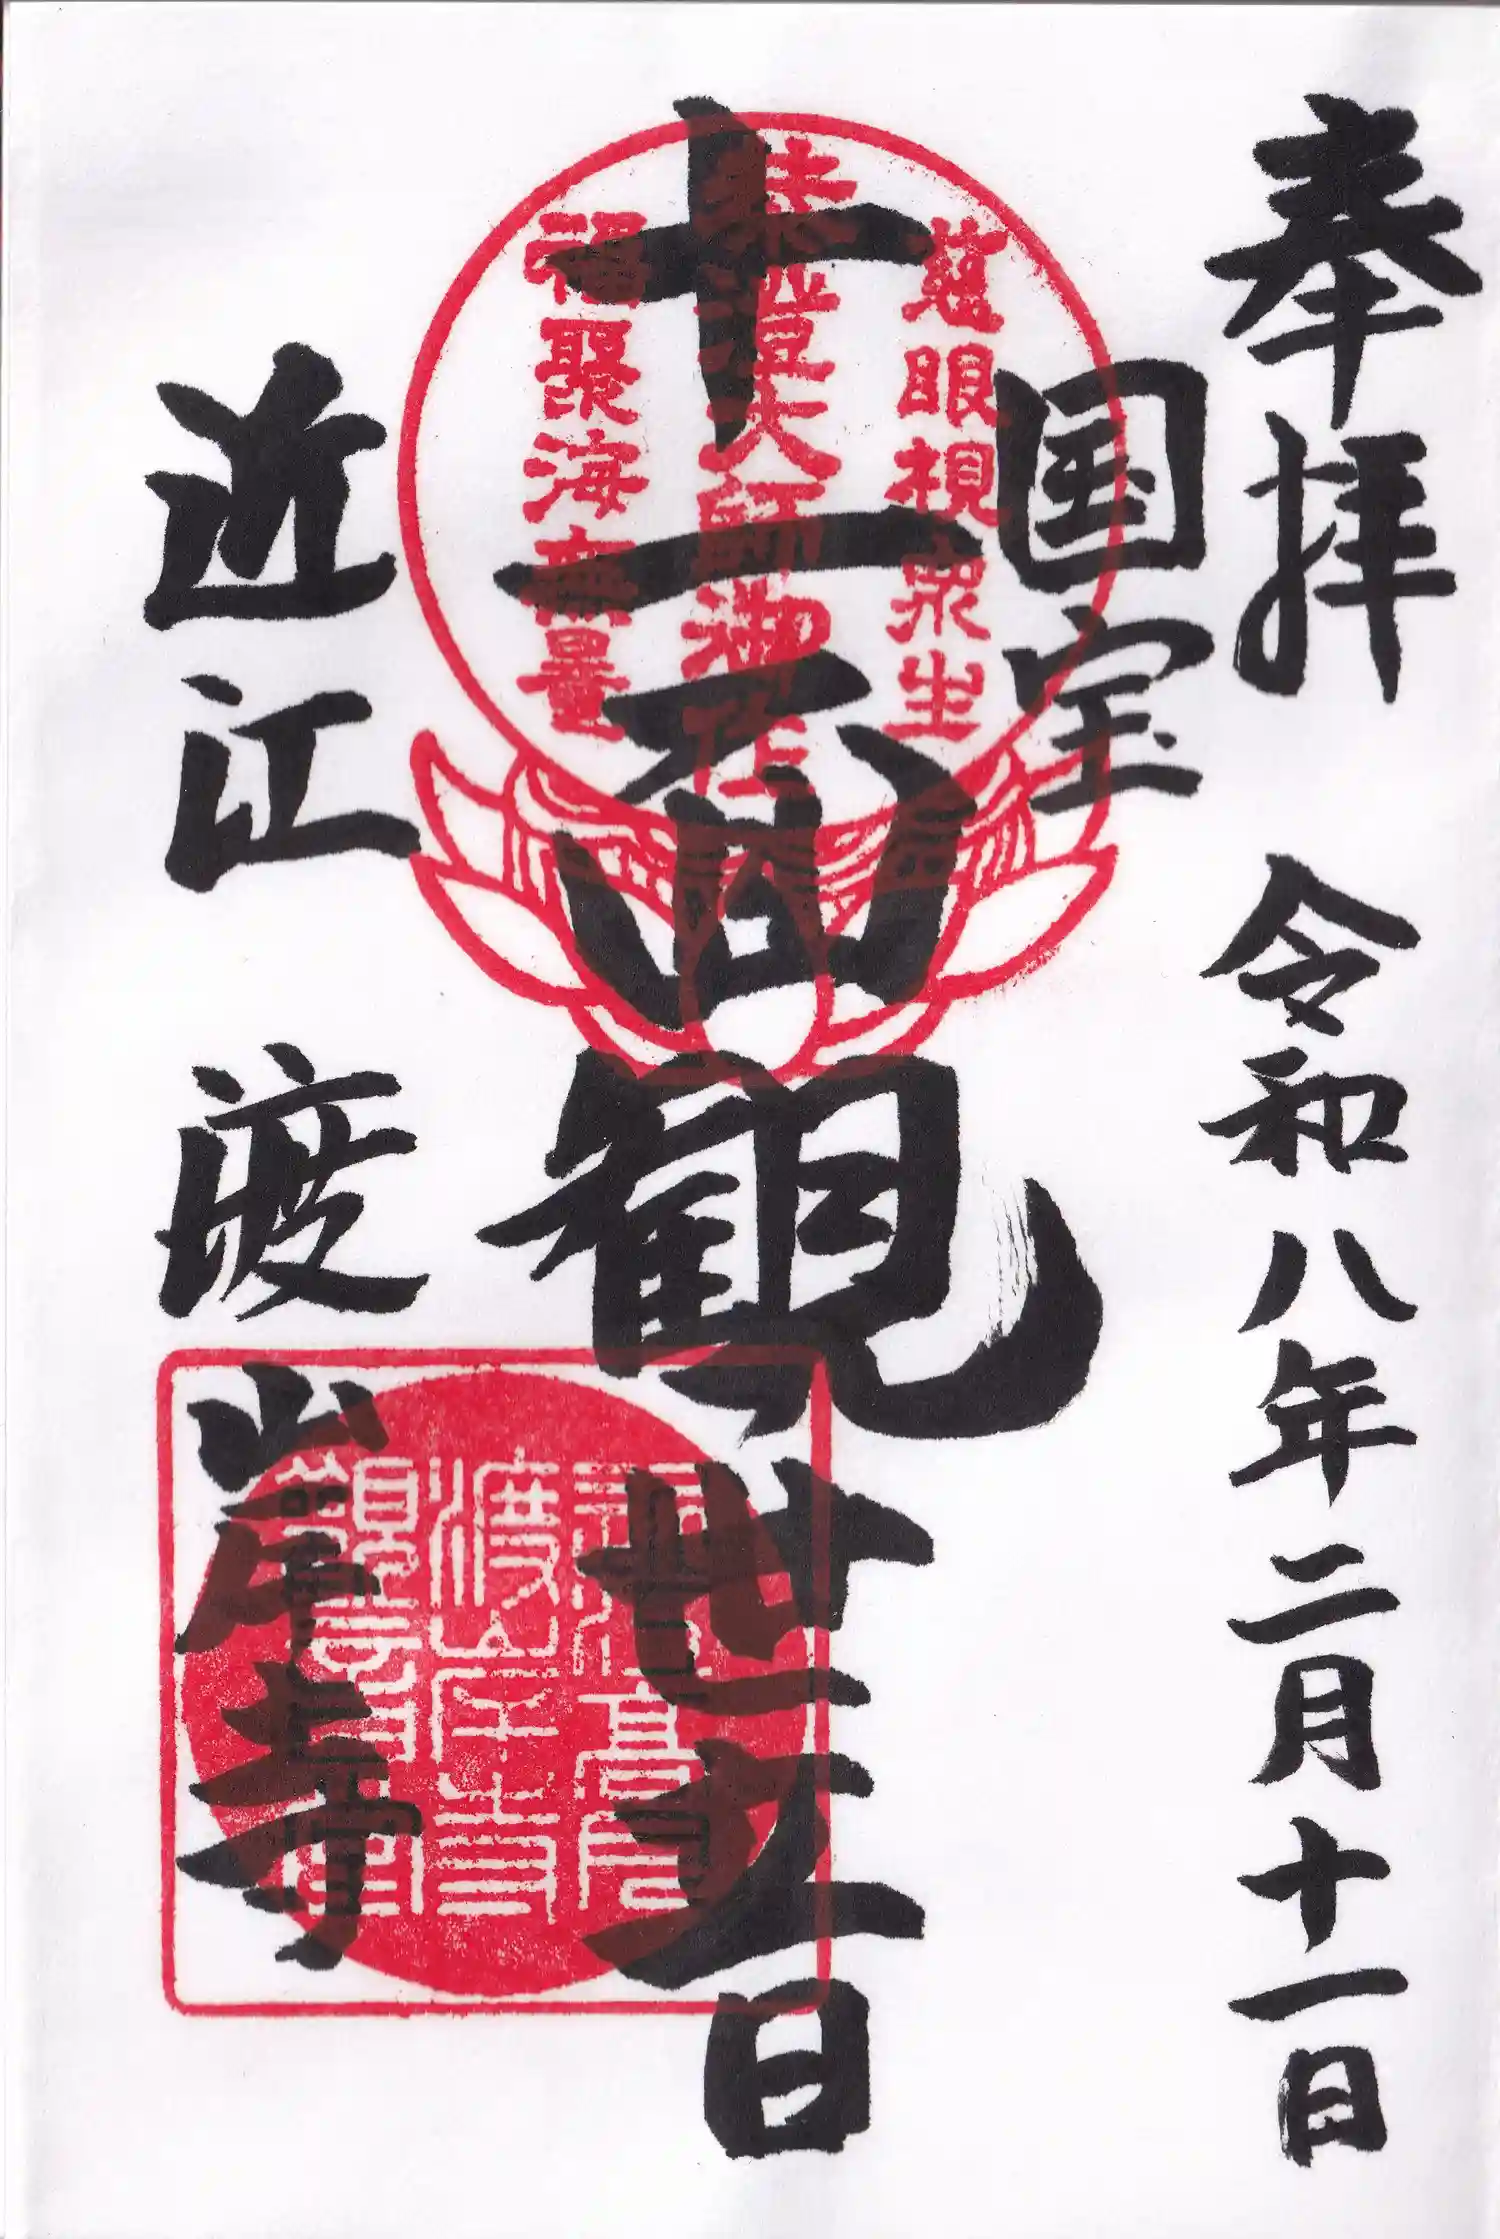 奉拝 令和八年二月十一日
国宝
十一面観世音
近江 渡岸寺
慈眼視衆生
泰澄大師御作
福聚海無量
渡岸寺